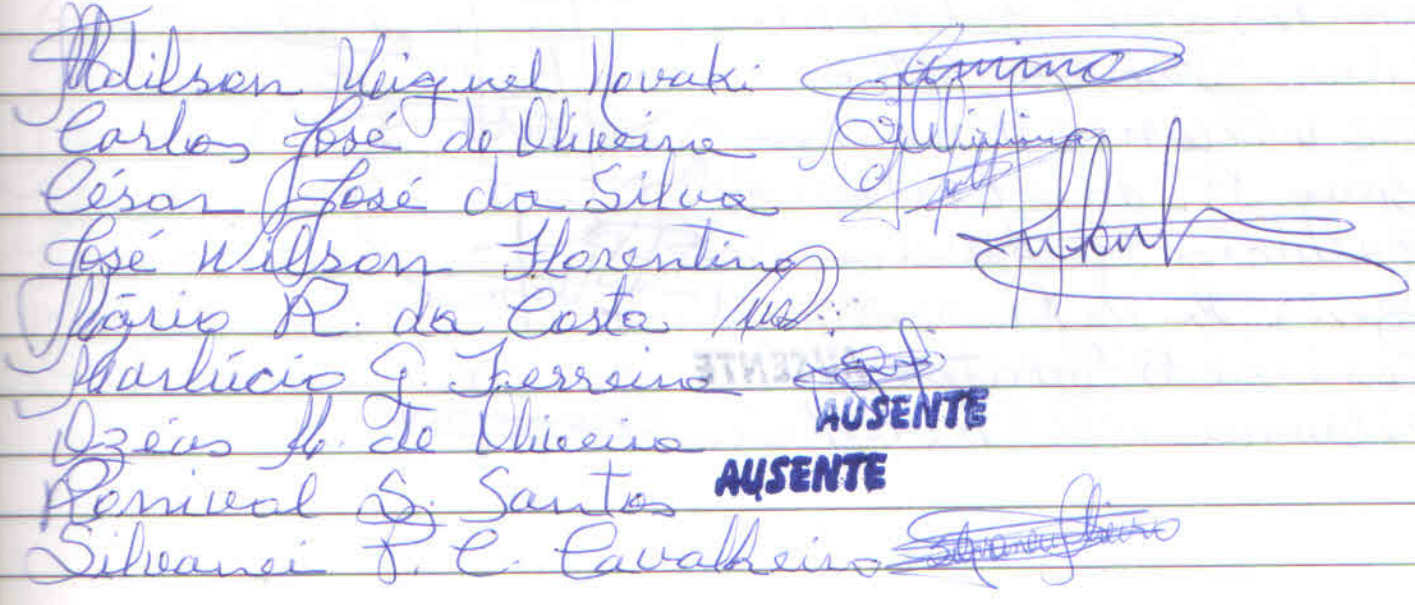 Adilson Miguel Novaki
Carlos José de Oliveira
César José da Silva
José Wilson Florentino
Mário R. da Costa
Marlúcio G. Ferreira
Ozéas M. de Oliveira AUSENTE
Ronival S. Santos AUSENTE
Silvanei P. C. Cavalheiro